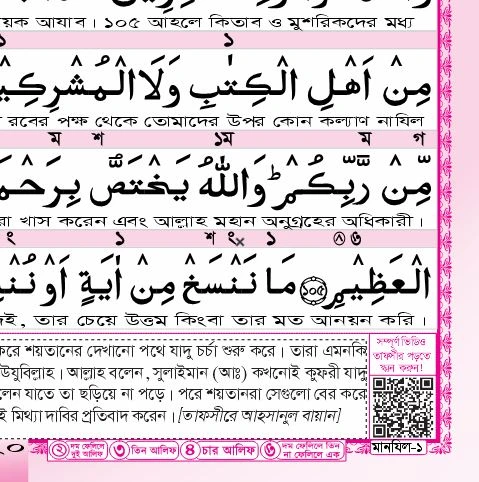 য়ক আযাব। ১০৫ আহলে কিতাব ও মুশরিকদের মধ্য
১ ১
مِنْ اَهْلِ الْكِتٰبِ وَلَا الْمُشْرِكِيْ
রবের পক্ষ থেকে তোমাদের উপর কোন কল্যাণ নাযিল
ম শ ১ম ম গ
مِّنْ رَّبِّكُمْ ؕ وَاللّٰهُ يَخْتَصُّ بِرَحْمَ
রা খাস করেন এবং আল্লাহ মহান অনুগ্রহের অধিকারী।
ং ১ শ ং× ১ ৪ ৬
الْعَظِيْمِ ১০৫ مَا نَنْسَخْ مِنْ اٰيَةٍ اَوْ نُنْ
দেই, তার চেয়ে উত্তম কিংবা তার মত আনয়ন করি।
করে শয়তানের দেখানো পথে যাদু চর্চা শুরু করে। তারা এমনকি
উযুবিল্লাহ। আল্লাহ বলেন, সুলাইমান (আঃ) কখনোই কুফরী যাদু
লেন যাতে তা ছড়িয়ে না পড়ে। পরে শয়তানরা সেগুলো বের করে
ই মিথ্যা দাবির প্রতিবাদ করেন। [তাফসীরে আহসানুল বায়ান]
সম্পূর্ণ ভিডিও
তাফসীর পড়তে
স্কান করুন!
২০ ২ দম ফেলিলে দুই আলিফ ৩ তিন আলিফ ৪ চার আলিফ ৬ দম ফেলিলে তিন না ফেলিলে এক মানযিল-১